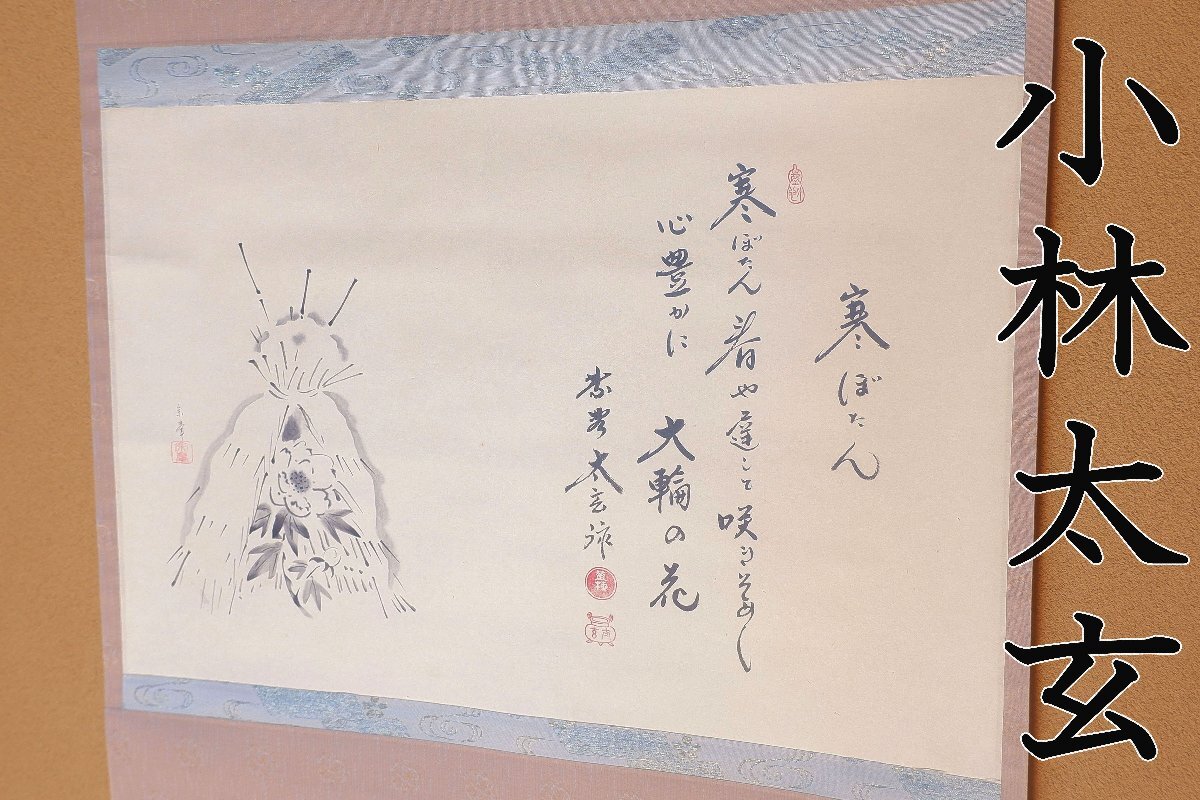 小林太玄
寒ぼたん
寒ぼたん 春や遅しと 咲きそめし
心豊かに 大輪の花
太玄作